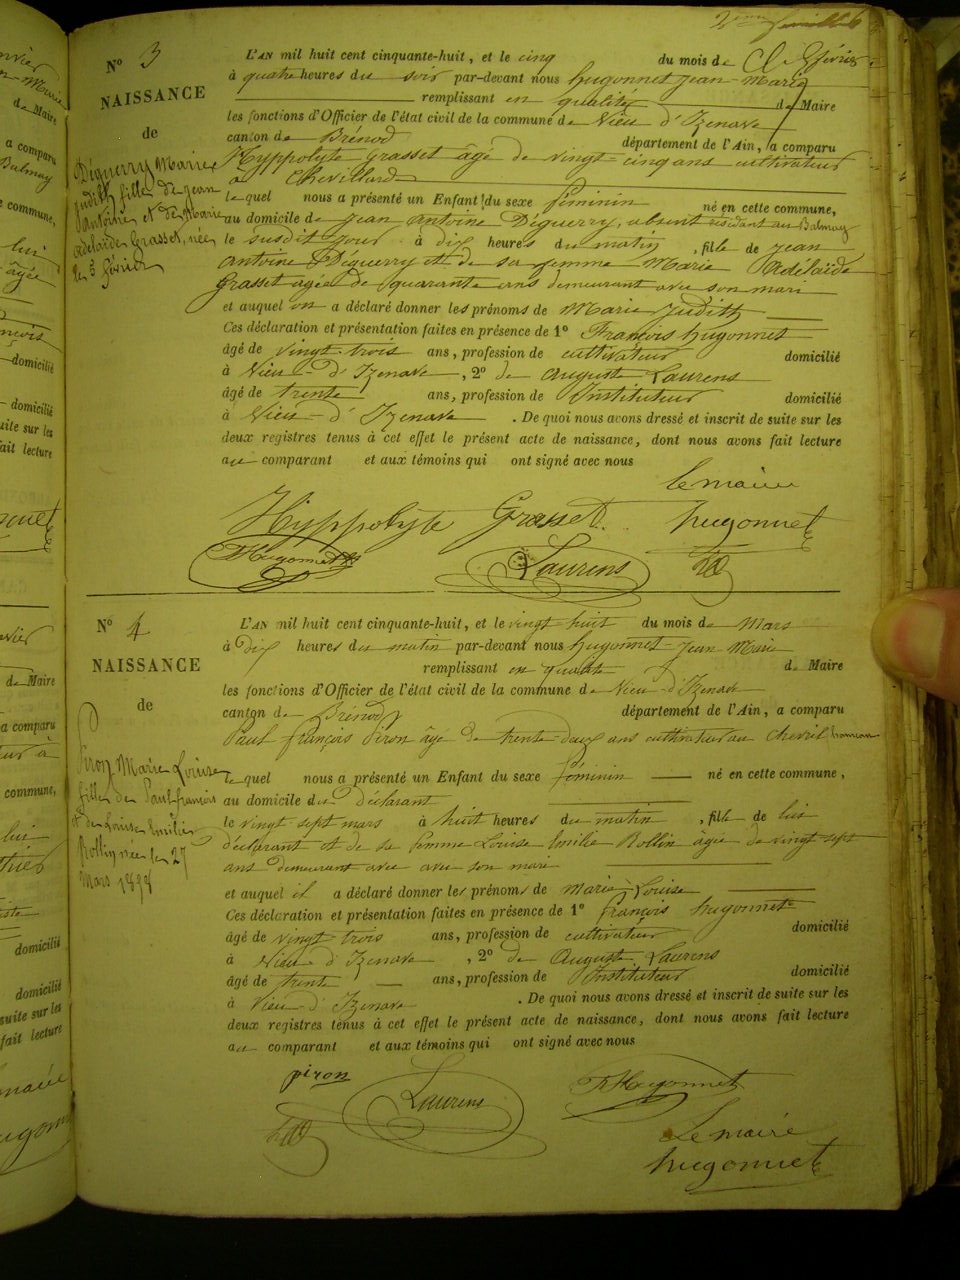 2eme feuillet
N° 3
NAISSANCE
de
Déguerry Marie
Judith fille de Jean
Antoine et de Marie
Adelaïde Grasset, née
le 5 février
L'AN mil huit cent cinquante-huit, et le cinq du mois de février
à quatre heures du soir par-devant nous hugonnet jean-Marie
remplissant en qualité de Maire
les fonctions d'Officier de l'état civil de la commune de Vieu d'Izenave
canton de Brénod département de l'Ain, a comparu
Hyppolyte Grasset âgé de vingt-cinq ans cultivateur
à Chevillard
lequel nous a présenté un Enfant du sexe féminin né en cette commune,
au domicile de Jean Antoine Déguerry, absent résidant au Balmay
le susdit jour à dix heures du matin, fille de Jean
Antoine Déguerry et de sa femme Marie Adélaïde
Grasset agée de quarante ans demeurant avec son mari
et auquel on a déclaré donner les prénoms de Marie Judith
Ces déclaration et présentation faites en présence de 1° François hugonnet
âgé de vingt-trois ans, profession de cultivateur domicilié
à Vieu d'Izenave, 2° de Auguste Laurens
âgé de trente ans, profession de Instituteur domicilié
à Vieu-d'Izenave. De quoi nous avons dressé et inscrit de suite sur les
deux registres tenus à cet effet le présent acte de naissance, dont nous avons fait lecture
au comparant et aux témoins qui ont signé avec nous
le maire
Hyppolyte Grasset. hugonnet
FHugonnet Laurens
N° 4
NAISSANCE
de
Piron Marie Louise
fille de Paul françois
et de Louise Emilie
Rollin née le 27
Mars 1858
L'AN mil huit cent cinquante-huit, et le vingt huit du mois de Mars
à dix heures du matin par-devant nous hugonnet Jean Marie
remplissant en qualité de Maire
les fonctions d'Officier de l'état civil de la commune de Vieu-d'Izenave
canton de Brénod département de l'Ain, a comparu
Paul françois Piron agé de trente-deux ans cultivateur au Chevril hameau
lequel nous a présenté un Enfant du sexe féminin né en cette commune,
au domicile du déclarant
le vingt sept mars à huit heures du matin, fille de lui
déclarant et de sa femme Louise Emilie Rollin âgée de vingt sept
ans demeurant avec avec son mari
et auquel il a déclaré donner les prénoms de marie-Louise
Ces déclaration et présentation faites en présence de 1° françois hugonnet
âgé de vingt trois ans, profession de cultivateur domicilié
à Vieu d'Izenave, 2° de Auguste Laurens
âgé de trente ans, profession de Instituteur domicilié
à Vieu d'Izenave. De quoi nous avons dressé et inscrit de suite sur les
deux registres tenus à cet effet le présent acte de naissance, dont nous avons fait lecture
au comparant et aux témoins qui ont signé avec nous
piron
Laurens FHugonnet
Le maire
hugonnet